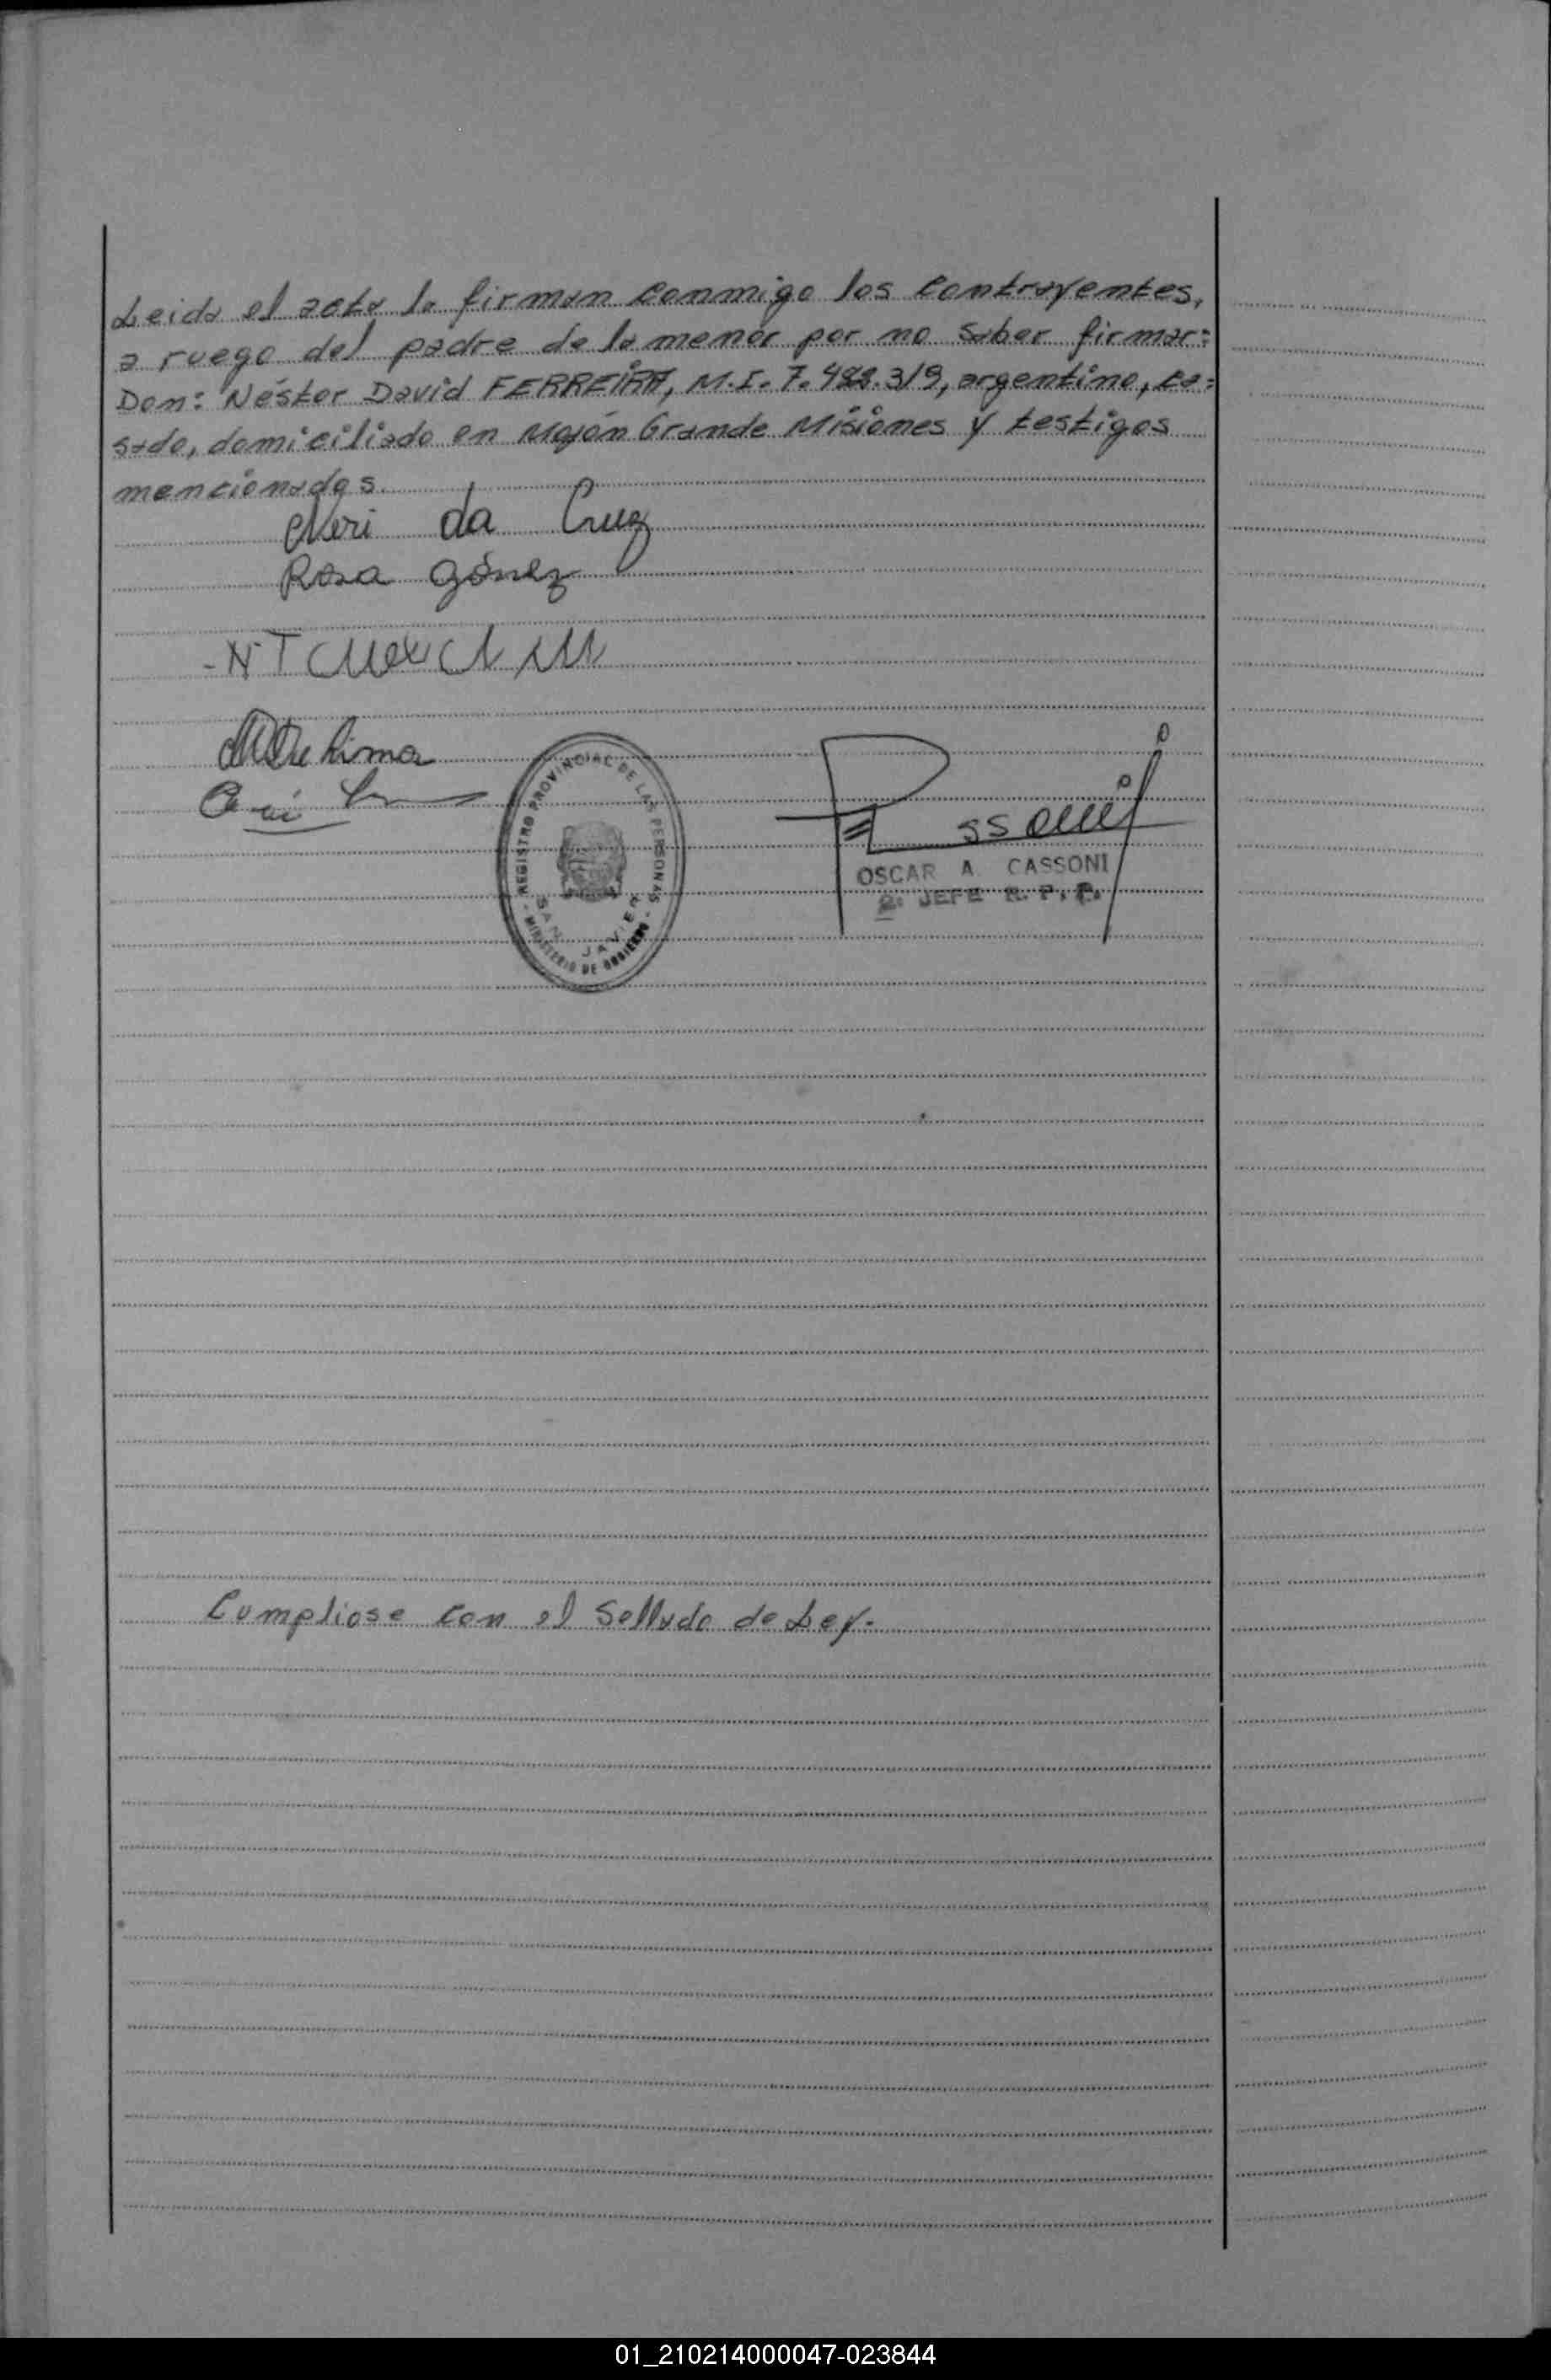 Leida el acta la firman conmigo los contrayentes,
a ruego del padre de la menor por no saber firmar:
Don: Néstor David FERREIRA, M.I. 7.488.319, argentino, ca=
sado, domiciliado en Mojón Grande Misiones y testigos
mencionados.
Neri da Cruz
Rosa Gómez
Lima
REGISTRO PROVINCIAL DE LAS PERSONAS
SAN JAVIER
MINISTERIO DE GOBIERNO
OSCAR A. CASSONI
2º JEFE R. P. P.
Cumpliose con el Sellado de Ley.
01_210214000047-023844